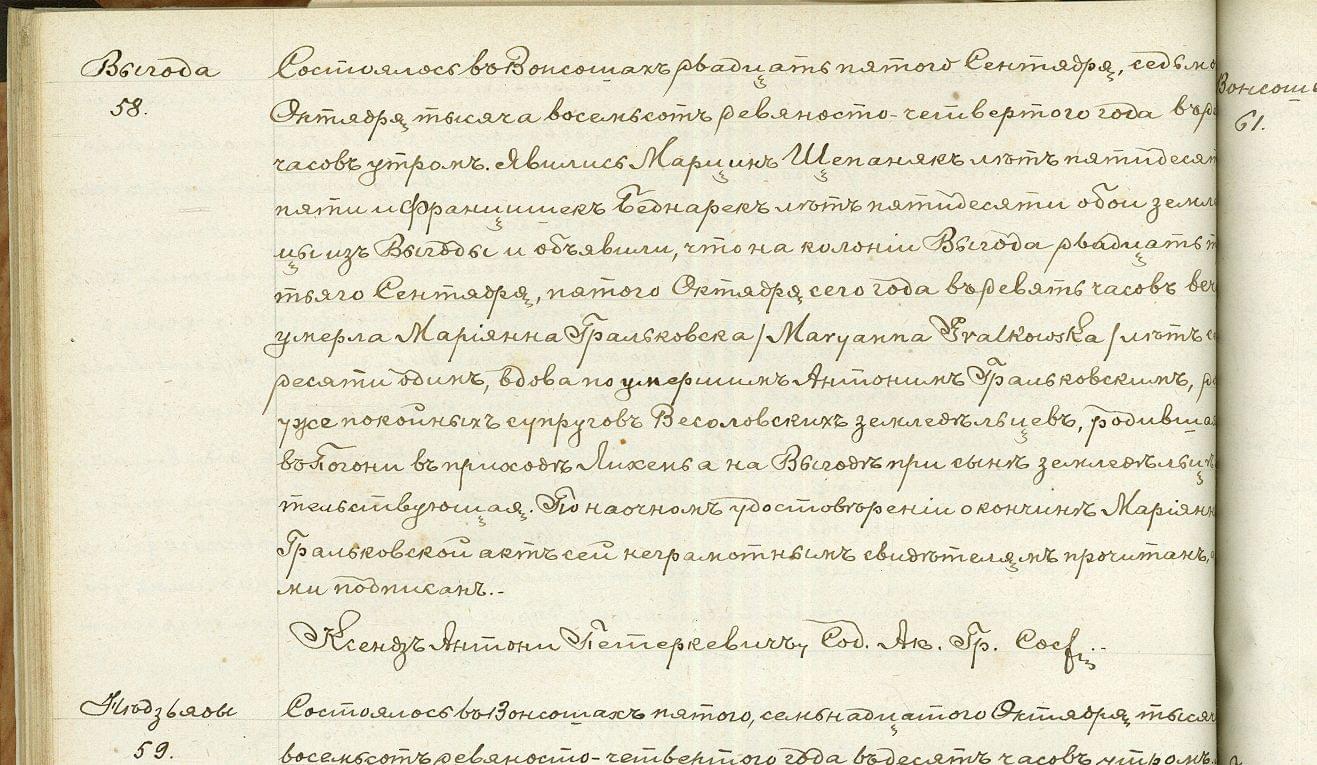 Выгода
58.
Состоялось въ Вонсошахъ двадцать пятого Сентября, седьмо
Октября тысяча восемьсотъ девяносто-четвертого года въ де
часовъ утромъ. Явились Марцинъ Щепанякъ лѣтъ пятидесят
пяти и Францишекъ Беднарекъ лѣтъ пятидесяти обои земле
цы изъ Выгоды и объявили, что на колоніи Выгода двадцать т
тьяго Сентября, пятого Октября сего года въ девять часовъ веч
умерла Маріянна Гральковска / Maryanna Gralkowska / лѣтъ се
десяти одинъ, вдова по умершимъ Антонимъ Гральковскимъ, до
уже покойныхъ супруговъ Весоловскихъ земледѣльцевъ, родивша
въ Гогони въ приходѣ Лихень а на Выгодѣ при сынѣ земледѣльц
тельствующая. По наочномъ удостовѣреніи о кончинѣ Маріянн
Гральковской актъ сей неграмотнымъ свидѣтелямъ прочитанъ,
ми подписанъ.-
Ксендзъ Антони Петеркевичъ, Сод. Ак. Гр. Сос
Нюдзьяды
59.
Состоялось въ Вонсошахъ пятого, семьнадцатого Октября тысяч
восемьсотъ девяносто-четвертого года въ десять часовъ утромъ.
Вонсоши
61.